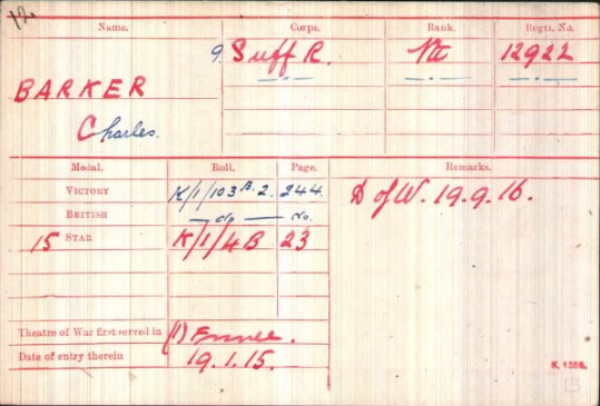 12.
Name. Corps. Rank. Regtl. No.
9. Suff R. Pte 12922
BARKER
Charles.
Medal. Roll. Page. Remarks.
VICTORY K/1/103 B. 2. 244. D of W. 19.9.16.
BRITISH do do.
15 STAR K/1/4 B 23
Theatre of War first served in (1) France.
Date of entry therein 19.1.15.
K. 1386.